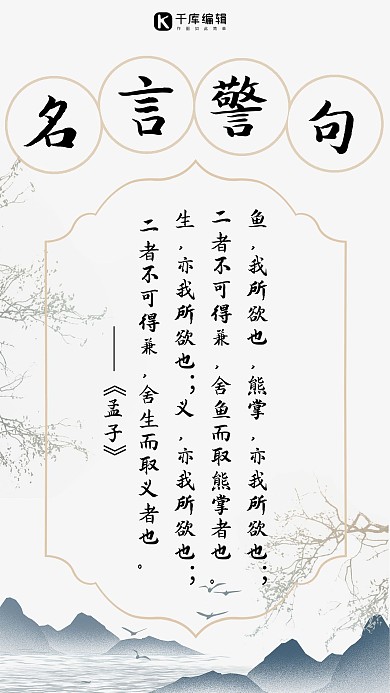 千库编辑
名言警句
鱼，我所欲也，熊掌，亦我所欲也；
二者不可得兼，舍鱼而取熊掌者也。
生，亦我所欲也；义，亦我所欲也；
二者不可得兼，舍生而取义者也。
——《孟子》